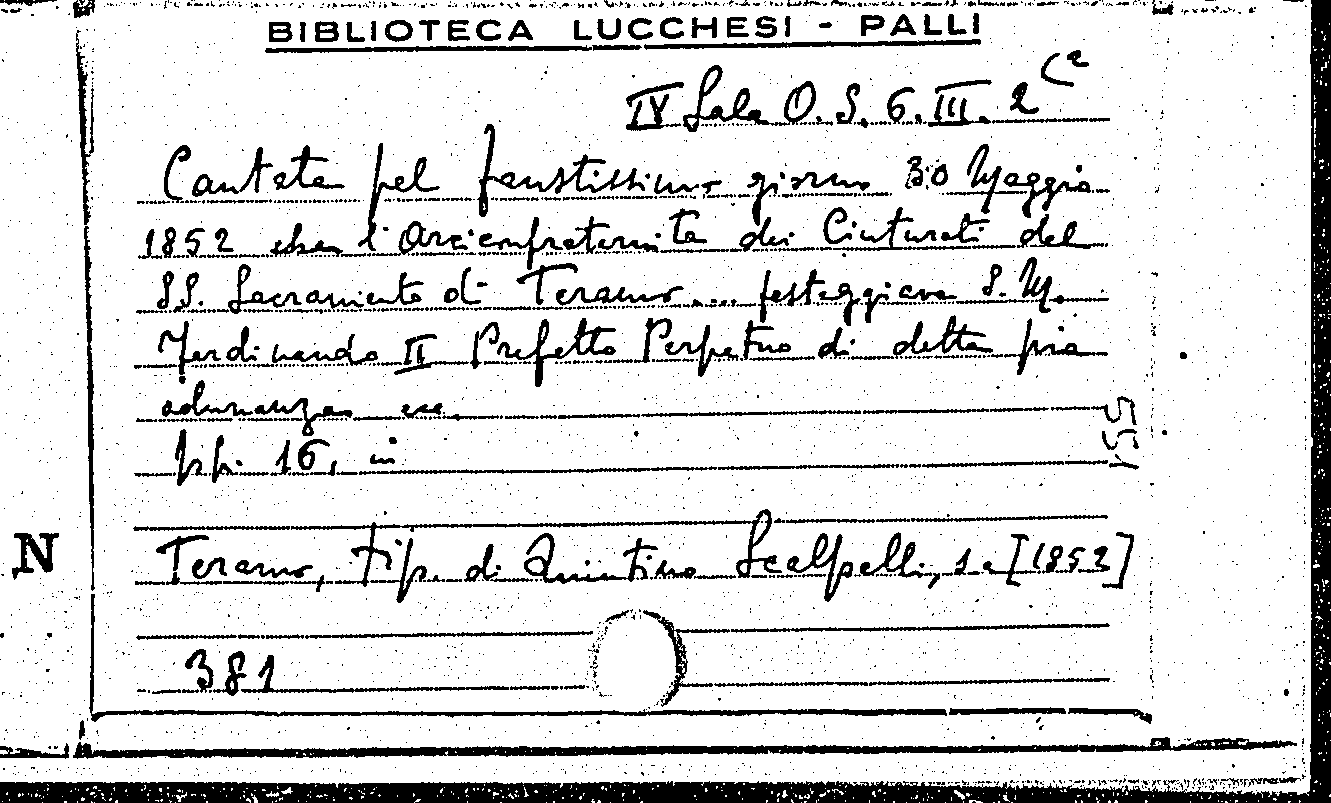 BIBLIOTECA LUCCHESI - PALLI
IV Sala O. S. 6. III. 2 (2
Cantata pel faustissimo giorno 30 Maggio
1852 che l'Arciconfraternita dei Cinturati del
SS. Sacramento di Teramo .... festeggiava S. M.
Ferdinando II Prefetto Perpetuo di detta pia
adunanza ecc.
pp. 16, in
155
N
Teramo, tip. di Quintino Scalpelli, s.a. [1852]
381